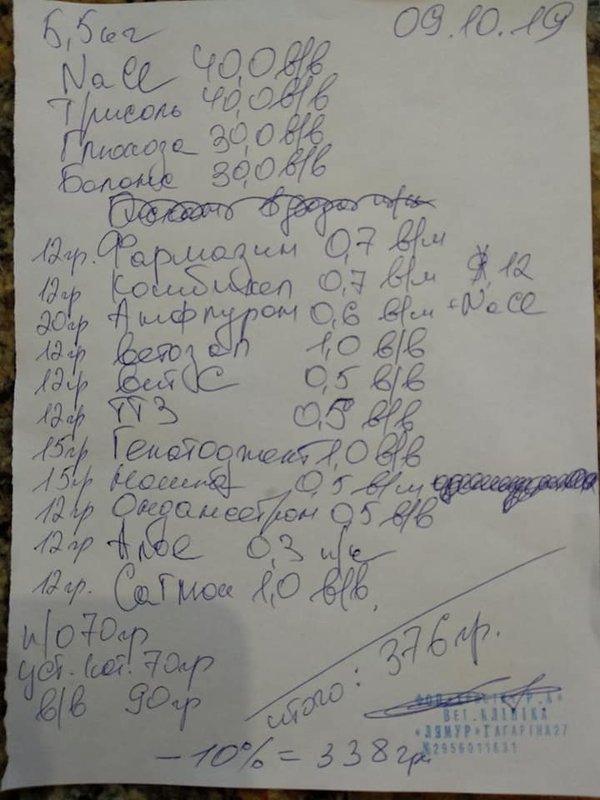 5,5кг 09.10.19
NaCl 40,0 в/в
Трисоль 40,0 в/в
Глюкоза 30,0 в/в
Баланс 30,0 в/в
12гр. Фармазин 0,7 в/м
12гр Комбикел 0,7 в/м 12
20гр Амфлурон 0,6 в/м + NaCl
12гр Ветозал 1,0 в/в
12гр вит С 0,5 в/в
12гр ТТЗ 0,5 в/в
15гр Гепатоджект 1,0 в/в
15гр 0,5 в/м
12гр Ондансетрон 0,5 в/в
12гр Алое 0,3 п/к
12гр. 1,0 в/в.
п/о 70гр
уст. кат. 70гр
в/в 90гр
итого: 376гр.
-10% = 338гр
ВЕТ.КЛІНІКА
«ЛЯМУР» ГАГАРІНА27
№2956011631